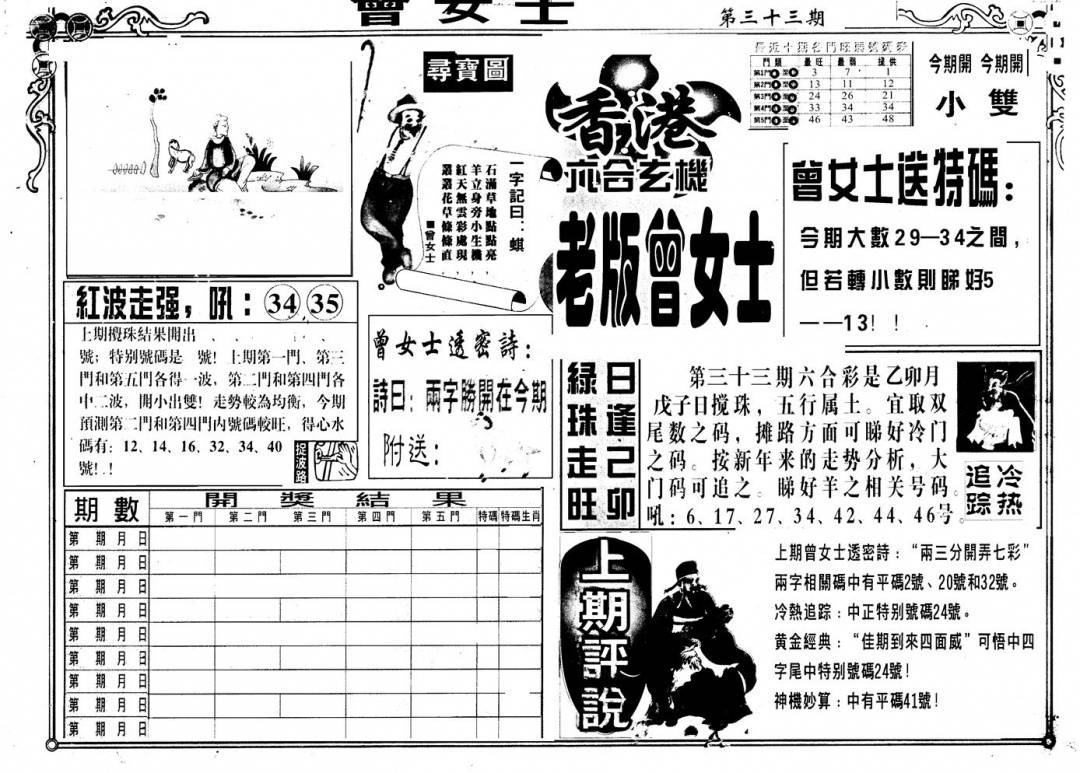 曾女士
第三十三期
尋寶圖
一字記曰：蜞
石滿草地點點亮，
羊立身旁小生機，
紅天無雲彩處現，
叢叢花草條條直，
■曾女士
香港
六合玄機
老版曾女士
最近十期各門旺弱號碼彩
門類 最旺 最弱 提供
第1門 3 7 1
第2門 13 11 12
第3門 24 26 21
第4門 33 34 34
第5門 46 43 48
今期開 今期開
小 雙
曾女士送特碼：
今期大數29—34之間，
但若轉小數則睇好5
——13！！
紅波走强，吼：34 35
上期攪珠結果開出 、 、 、 、
號；特别號碼是 號！上期第一門、第三
門和第五門各得一波，第二門和第四門各
中二波，開小出雙！走勢較為均衡，今期
預測第二門和第四門內號碼較旺，得心水
碼有：12、14、16、32、34、40
號！！
捉波路
曾女士透密詩：
詩曰：兩字勝開在今期
附送：
綠珠走旺
日逢己卯
第三十三期六合彩是乙卯月
戊子日搅珠，五行属土。宜取双
尾数之码，摊路方面可睇好冷门
之码。按新年来的走势分析，大
门码可追之。睇好羊之相关号码。
吼：6、17、27、34、42、44、46号。
冷热
追踪
期數 開獎結果
第一門 第二門 第三門 第四門 第五門 特碼 特碼生肖
第 期 月 日
第 期 月 日
第 期 月 日
第 期 月 日
第 期 月 日
第 期 月 日
第 期 月 日
第 期 月 日
第 期 月 日
上期評說
上期曾女士透密詩：“兩三分開弄七彩”
兩字相關碼中有平碼2號、20號和32號。
冷熱追踪：中正特别號碼24號。
黄金經典：“佳期到來四面威”可悟中四
字尾中特别號碼24號！
神機妙算：中有平碼41號！